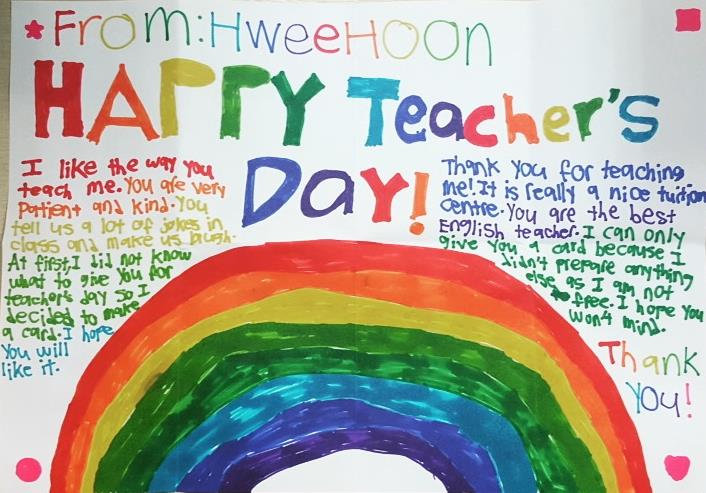 From: HweeHoon
HAPPY Teacher's
Day!
I like the way you
teach me. You are very
patient and kind. You
tell us a lot of jokes in
class and make us laugh.
At first, I did not know
what to give you for
teacher's day so I
decided to make
a card. I hope
You will
like it.
Thank you for teaching
me! It is really a nice tuition
centre. You are the best
English teacher. I can only
give you a card because I
didn't prepare anything
else as I am not
free. I hope you
won4 mind.
Thank
You!